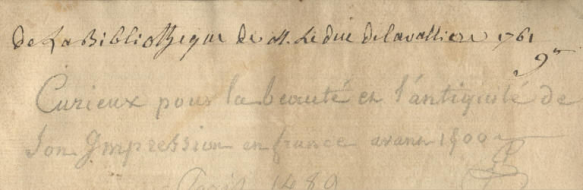 de La Bibliotheque de M. Le duc de lavalliere 1761
9
Curieux pour la beauté et l'antiquité de
son Jmpression en france avant 1500
Paris 1489